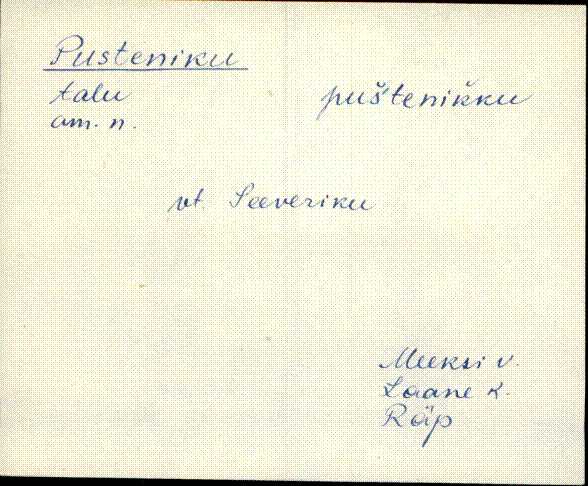 Pusteniku
talu puštenikku
am. n.
vt. Seeveriku
Meeksi v.
Laane k.
Räp